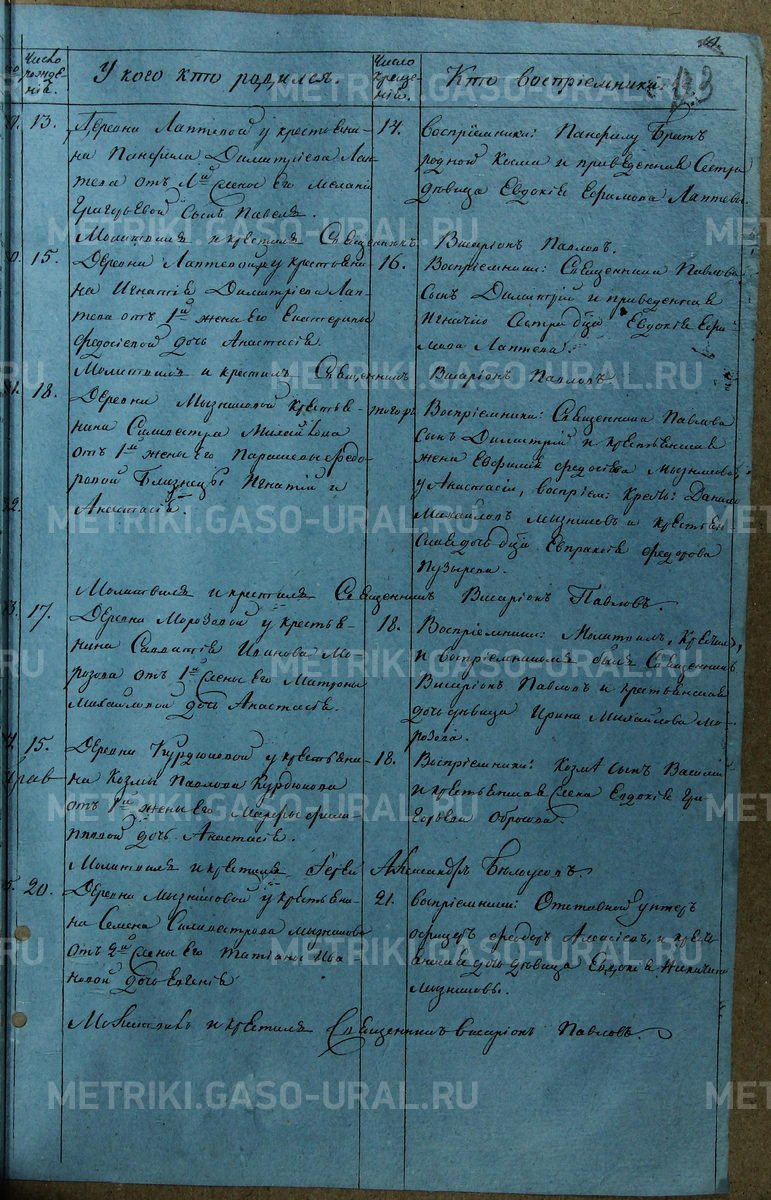 Число рожденій.
У кого кто родился.
Число крещеній.
Кто воспріемники.
13.
Деревни Лаптевой у крестьяни-
на Панфила Димитріева Лап-
тева отъ 1й жены его Меланіи
Григорьевой сынъ Павелъ.
14.
Воспріемники: Панфилу братъ
родной Косма и приведенная сестра
дѣвица Евдокія Ефимова Лаптевы.
Молитвилъ и крестилъ Священникъ Висаріонъ Павловъ.
15.
Деревни Лаптевой у крестьяни-
на Игнатія Димитріева Лап-
тева отъ 1й жены его Екатерины
Федосіевой дочь Анастасія.
16.
Воспріемники: Священника Павлова
сынъ Димитрій и приведенная
Игнатію сестра дѣвица Евдокія Ефи-
мова Лаптева.
Молитвилъ и крестилъ Священникъ Висаріонъ Павловъ.
18.
Деревни Мызниковой крестья-
нина Силиверста Михайлова
отъ 1й жены его Парасковьи Федо-
ровой близнецы Игнатій и
Анастасія.
Воспріемники: Священника Павлова
сынъ Димитрій и крестьянская
жена Евфимія Федосіева Мызникова,
у Анастасіи, воспріем: крест: Данило
Михайловъ Мызниковъ и крестьян
ская дочь дѣвица Евпраксія Федотова
Пузырева.
Молитвилъ и крестилъ Священникъ Висаріонъ Павловъ.
17.
Деревни Морозовой у крестья-
нина Савватія Иванова Мо-
розова отъ 1й жены его Матроны
Михайловой дочь Анастасія.
18.
Воспріемники: Молитвилъ, крестилъ,
и воспріемникомъ былъ Священникъ
Висаріонъ Павловъ и крестьянская
дочь дѣвица Ирина Михайлова Мо-
розова.
15.
Деревни Курдюковой у крестьяни-
на Козмы Павлова Курдюкова
отъ 1й жены его Марфы Фили-
пповой дочь Анастасія.
18.
Воспріемники: Козмы сынъ Василій
и крестьянская жена Евдокія Гри-
горьева Обросова.
Молитвилъ и крестилъ Іерей Александръ Бѣлоусовъ.
20.
Деревни Мызниковой у крестьяни-
на Семена Силиверстова Мызникова
отъ 2й жены его Татіаны Ива
новой дочь Евгенія
21.
Воспріемники: Отставной унтеръ
офицеръ Федоръ Алексіевъ, и крест
янская дочь дѣвица Евдокія Никитина
Мызниковы.
Молитвилъ и крестилъ Священникъ Висаріонъ Павловъ.
METRIKI.GASO-URAL.RU